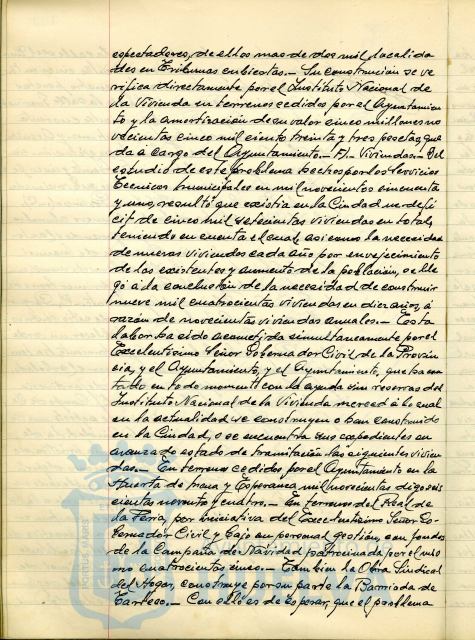 espectadores, de ellos mas de dos mil, localida
des en Tribunas cubiertas.- Su construccion se ve
rifica directamente por el Instituto Nacional de
la Vivienda en terrenos cedidos por el Ayuntamien
to y la amortización de su valor cinco millones no
vecientas cinco mil ciento treinta y tres pesetas, que
da á cargo del Ayuntamiento.- Viviendas.- Del
estudio de este problema hechos por los Servicios
Tecnicos municipales en mil novecientos cincuenta
y uno, resultó que existia en la Ciudad un defi
cit de cinco mil setecientas viviendas en total,
teniendo en cuenta el cual, asi como la necesidad
de nuevas viviendas cada año por envejecimiento
de las existentes y aumento de la población, se lle
gó á la conclusión de la necesidad de construir
nueve mil cuatrocientas viviendas en diez años, á
razón de novecientas viviendas anuales.- Esta
labor ha sido acometida simultaneamente por el
Excelentisimo Señor Gobernador Civil de la Provin
cia, y el Ayuntamiento, y el Ayuntamiento, que ha con
tado en todo momento con la ayuda sin reservas del
Instituto Nacional de la Vivienda merced á lo cual
en la actualidad se construyen o han construido
en la Ciudad, o se encuentra sus expedientes en
avanzado estado de tramitación las siguientes vivien
das.- En terrenos cedidos por el Ayuntamiento en la
Huerta de mil novecientas
cientas noventa y cuatro.- En terrenos del Real de
la Feria, por iniciativa del Excelentisimo Señor Go
bernador Civil y bajo su personal gestión, con fondos
de la Campaña de Navidad patrocinada por el mis
mo cuatrocientas cinco.- Tambien la Obra Sindical
del Hogar, construye por su parte la Barriada de
Carlos.- Con ello es de esperar, que el problema